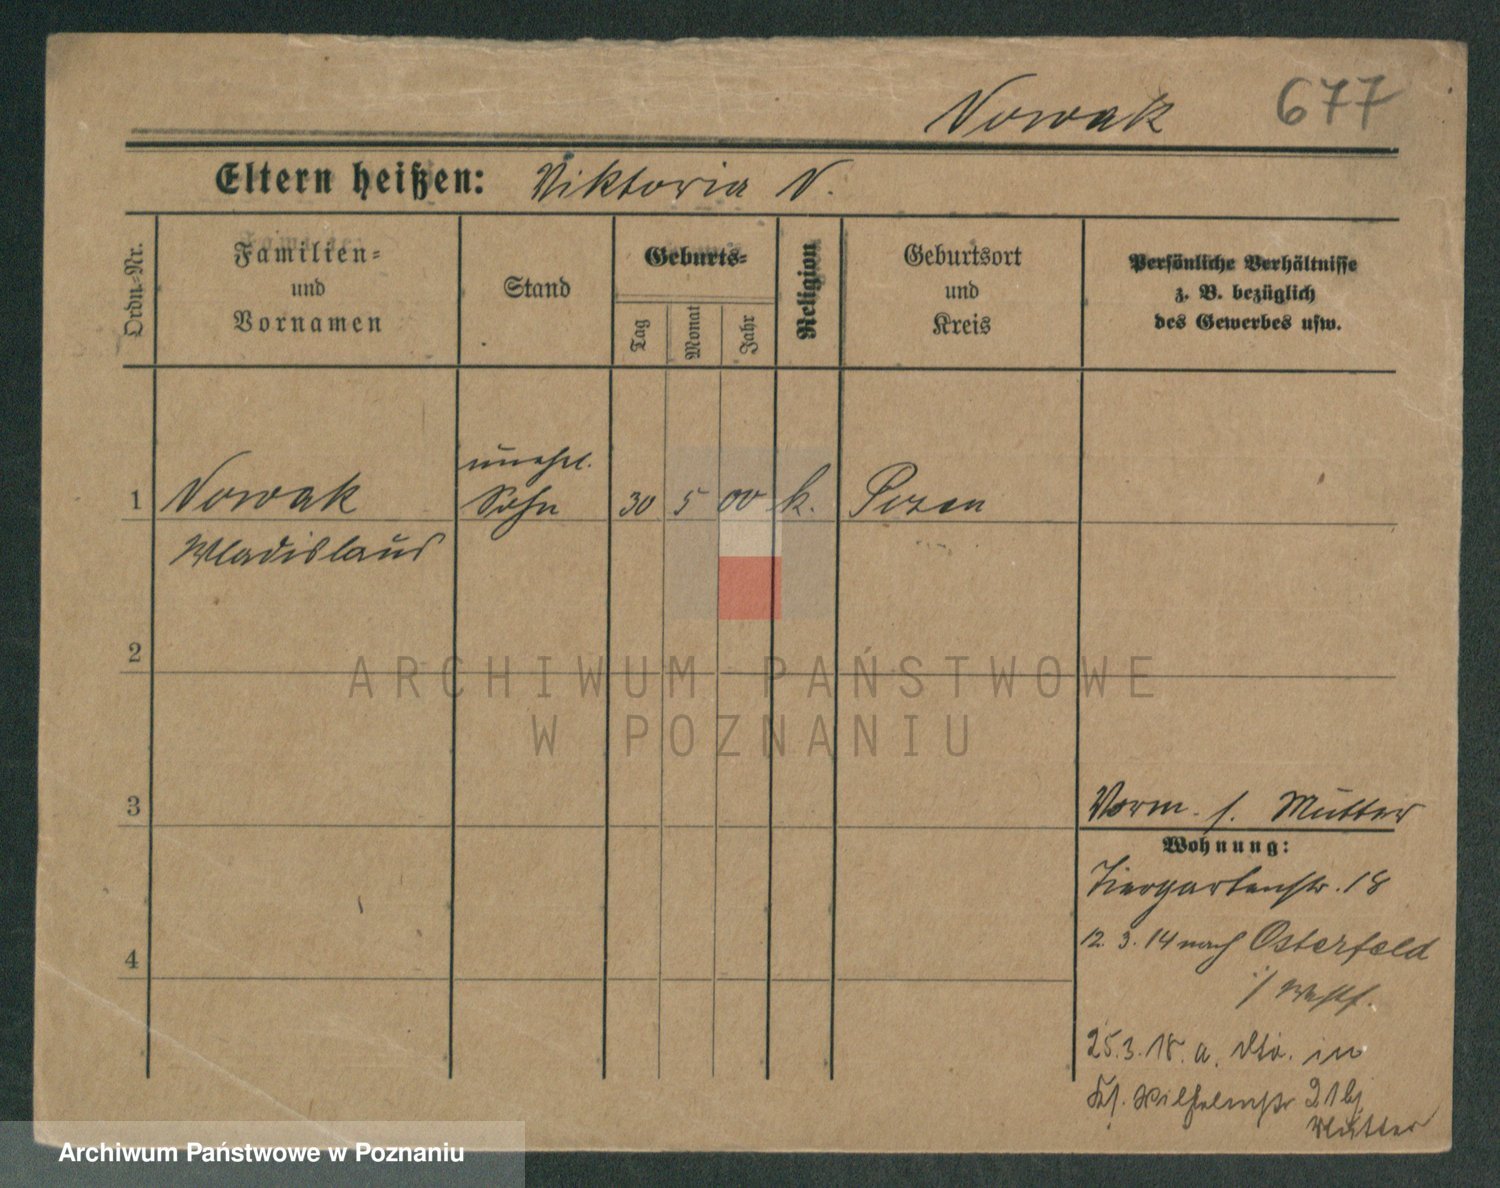 Nowak 677
Eltern heißen: Viktoria N.
Ordn.=Nr.
Familien=
und
Vornamen
Stand
Geburts=
Tag
Monat
Jahr
Religion
Geburtsort
und
Kreis
Persönliche Verhältnisse
z. B. bezüglich
des Gewerbes usw.
unehel.
1 Nowak Sohn 30 5 00 k. Posen
Wladislaus
2
ARCHIWUM PAŃSTWOWE
W POZNANIU
3
Vorm. s. Mutter
Wohnung:
Tiergartenstr. 18
4
12. 3. 14 nach Osterfeld
i/ Westf.
25. 3. 18. a. dto. in
Wilhelmstr 21 bj
Mutter
Archiwum Państwowe w Poznaniu